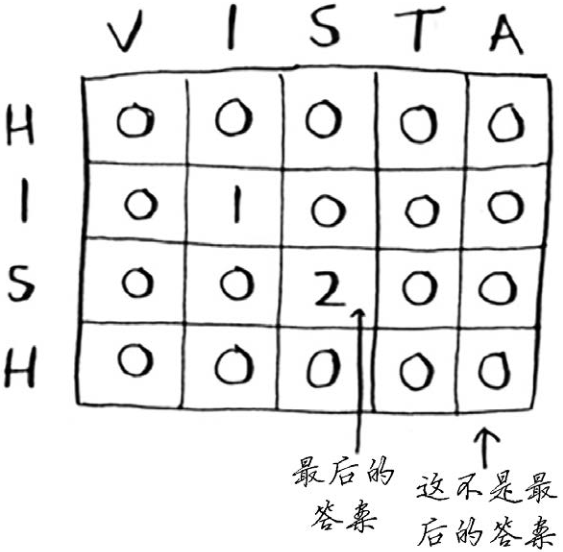 V I S T A
H 0 0 0 0 0
I 0 1 0 0 0
S 0 0 2 0 0
H 0 0 0 0 0
最后的
答案
这不是最
后的答案